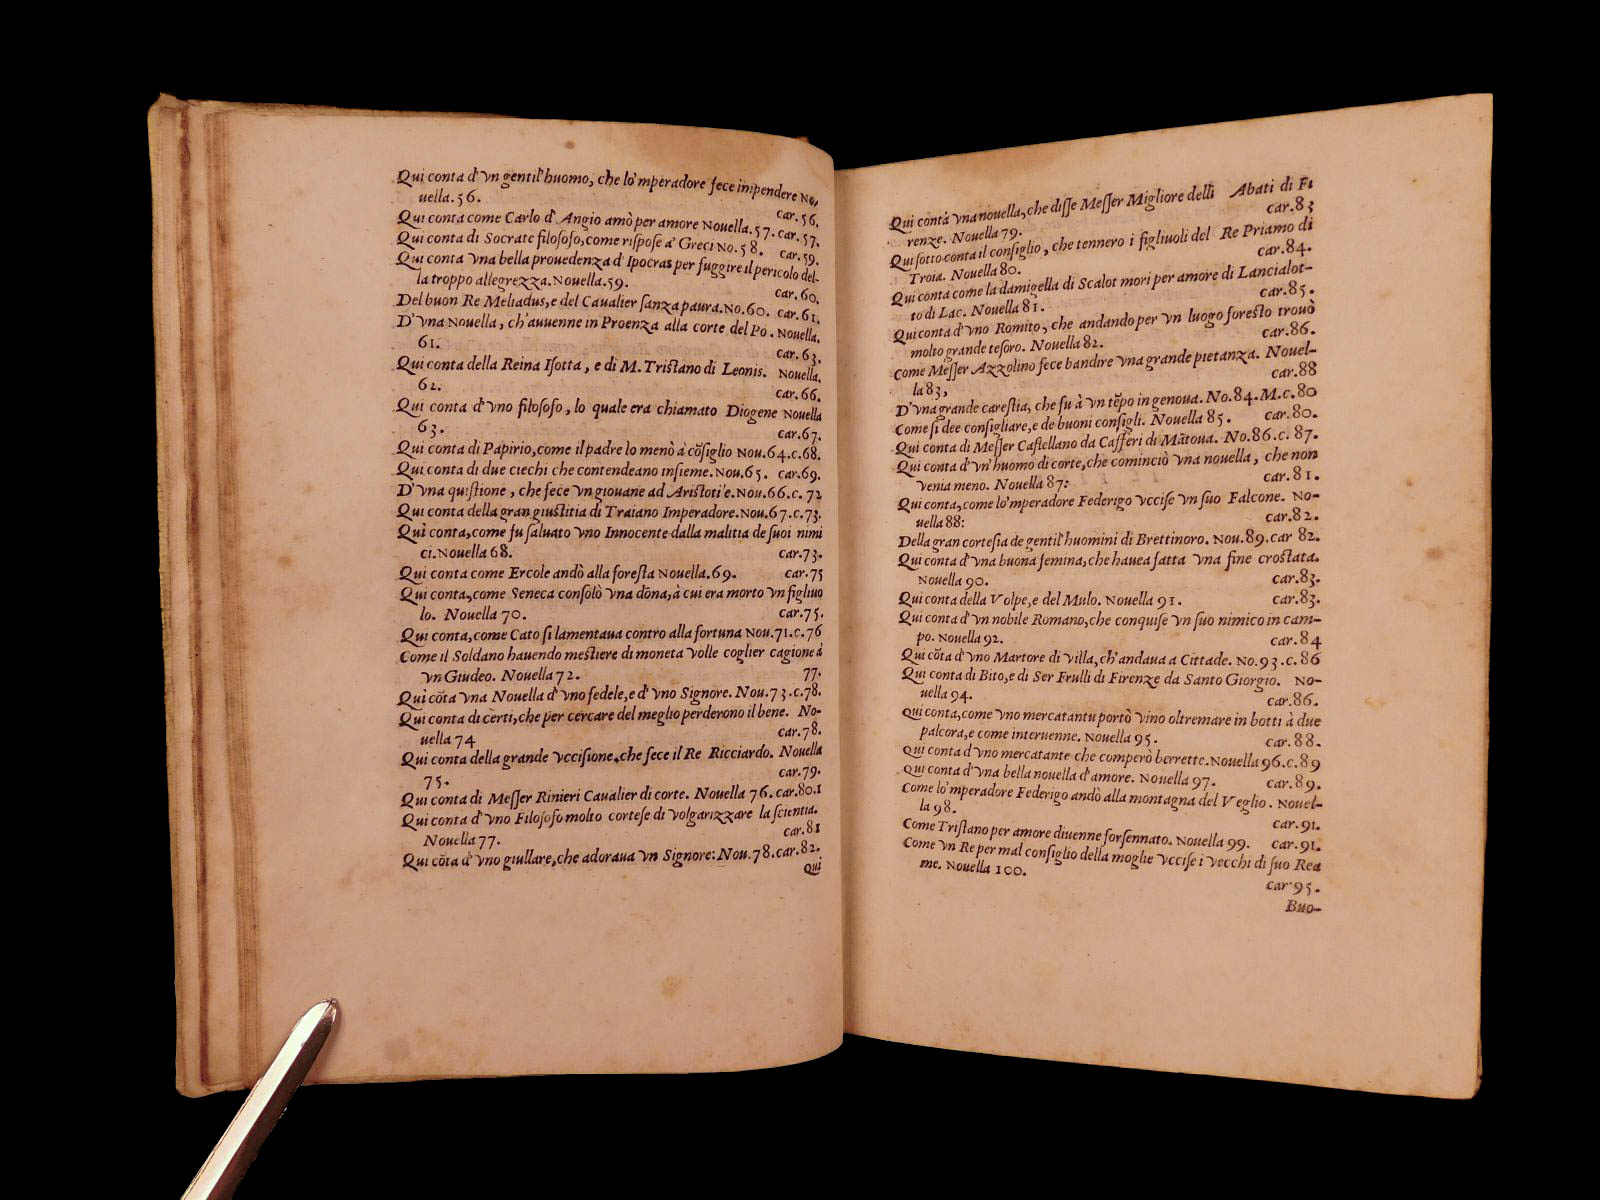 Qui conta d'vn gentil'huomo, che lo'mperadore fece impendere No,
uella.56. car.56.
Qui conta come Carlo d'Angio amò per amore Nouella.57.car.57.
Qui conta di Socrate filosofo,come rispose a' Greci No.58. car.59.
Qui conta vna bella prouedenza d'Ipocras per fuggire il pericolo del-
la troppo allegrezza.Nouella.59. car.60.
Del buon Re Meliadus,e del Caualier sanza paura.No.60. car.61.
D'vna Nouella, ch'auuenne in Proenza alla corte del Po. Nouella.
61. car.63.
Qui conta della Reina Isotta, e di M.Tristano di Leonis. Nouella.
62. car.66.
Qui conta d'vno filosofo, lo quale era chiamato Diogene Nouella
63. car.67.
Qui conta di Papirio,come il padre lo menò à cõsiglio Nou.64.c.68.
Qui conta di due ciechi che contendeano insieme.Nou.65. car.69.
D'vna quistione, che fece vn giouane ad Aristotile.Nou.66.c.72
Qui conta della gran giustitia di Traiano Imperadore.Nou.67.c.73.
Quì conta,come fu saluato vno Innocente dalla malitia de suoi nimi
ci.Nouella 68. car.73.
Qui conta come Ercole andò alla foresta Nouella.69. car.75
Qui conta,come Seneca consolò vna dõna,à cui era morto vn figliuo
lo. Nouella 70. car.75.
Qui conta,come Cato si lamentaua contro alla fortuna Nou.71.c.76
Come il Soldano hauendo mestiere di moneta volle coglier cagione à
vn Giudeo. Nouella 72. 77.
Quì cõta vna Nouella d'vno fedele,e d'vno Signore. Nou.73.c.78.
Qui conta di certi,che per cercare del meglio perderono il bene. No-
uella 74 car.78.
Qui conta della grande vccisione,che fece il Re Ricciardo. Nouella
75. car.79.
Qui conta di Messer Rinieri Caualier di corte. Nouella 76.car.80.1
Qui conta d'vno Filosofo molto cortese di volgarizzare la scientia.
Nouella 77. car.81
Qui cõta d'vno giullare,che adoraua vn Signore: Nou.78.car.82.
Qui
Qui conta vna nouella,che disse Messer Migliore delli Abati di Fi
renze. Nouella 79. car.83
Qui sotto conta il consiglio, che tennero i figliuoli del Re Priamo di
Troia. Nouella 80. car.84.
Qui conta come la damigella di Scalot mori per amore di Lancialot-
to di Lac. Nouella 81. car.85.
Qui conta d'vno Romito, che andando per vn luogo foresto trouò
molto grande tesoro. Nouella 82. car.86.
Come Messer Azzolino fece bandire vna grande pietanza. Nouel-
la 83, car.88
D'vna grande carestia, che fu à vn tẽpo in genoua. No.84.M.c.80
Come si dee consigliare,e de buoni consigli. Nouella 85. car.80.
Qui conta di Messer Castellano da Cafferi di Mãtoua. No.86.c.87.
Qui conta d'vn'huomo di corte,che cominciò vna nouella, che non
venia meno. Nouella 87: car.81.
Qui conta,come lo'mperadore Federigo vccise vn suo Falcone. No-
uella 88: car.82.
Della gran cortesia de gentil'huomini di Brettinoro. Nou.89.car 82.
Qui conta d'vna buona femina,che hauea fatta vna fine crostata.
Nouella 90. car.83.
Qui conta della Volpe,e del Mulo. Nouella 91. car.83.
Qui conta d'vn nobile Romano,che conquise vn suo nimico in cam-
po. Nouella 92. car.84
Qui cõta d'vno Martore di villa,ch'andaua a Cittade. No.93.c.86
Qui conta di Bito,e di Ser Frulli di Firenze da Santo Giorgio. No-
uella 94. car.86.
Qui conta,come vno mercatantu portò vino oltremare in botti à due
palcora,e come interuenne. Nouella 95. car.88.
Qui conta d'vno mercatante che comperò berrette.Nouella 96.c.89
Qui conta d'vna bella nouella d'amore. Nouella 97. car.89.
Come lo'mperadore Federigo andò alla montagna del Veglio. Nouel-
la 98. car.91.
Come Tristano per amore diuenne forsennato. Nouella 99. car.91.
Come vn Re per mal consiglio della moglie vccise i vecchi di suo Rea
me. Nouella 100.
car.95.
Buo-